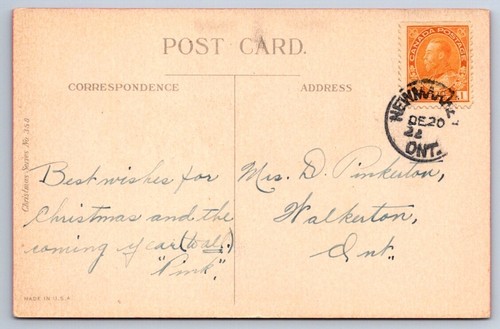 POST CARD.
CORRESPONDENCE
ADDRESS
CANADA POSTAGE
1
NEWMARKET
DE 20
22
ONT.
Christmas Series No. 358
Best wishes for
Christmas and the
coming year (to all.)
"Pink".
Mrs. D. Pinkerton,
Walkerton,
Ont.
MADE IN U.S.A.